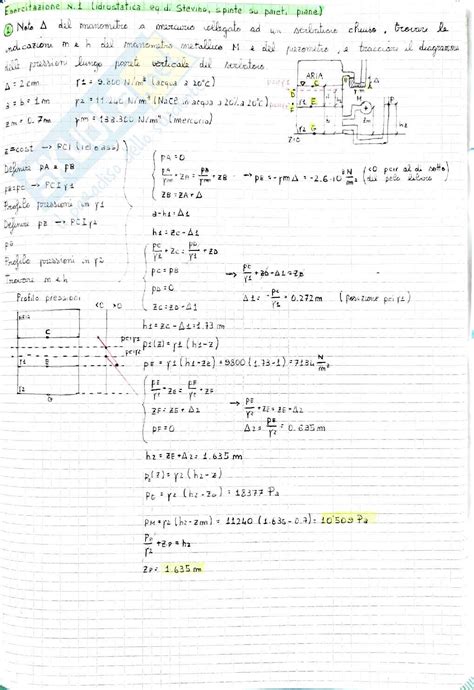 Esercitazione N.1 (idrostatica eq di Stevino, spinte su paret. piane)
① Noto Δ del manometro a mercurio collegato ad un serbatoio chiuso, trovare le
indicazioni m e h del manometro metallico M e del piezometro, e tracciare il diagramma
delle pressioni lungo parete verticale del serbatoio
Δ = 2cm γ1 = 9.800 N/m³ (acqua a 20°c)
a = b = 1m γ2 = 11.240 N/m³ (NaCl in acqua a 20%, a 20°c)
zm = 0.7m γm = 133.300 N/m³ (mercurio)
ARIA
z=cost → PCI (rel o ass)
Definire pA e pB
Profilo pressioni in γ1
Definire pE → PCI γ2
Profilo pressioni in γ2
Trovare m e h
Profilo pressioni
<0 >0
pA = 0
pA/γm + zA = pB/γm + zB → pB = -γmΔ = -2.6·10³ N/m²
zB = zA + Δ
a-h1=Δ1
h1 = zC - Δ1
pC/γ1 + zC = pD/γ1 + zD
pC = pB
pD = 0
zC = zD - Δ1
Δ1 = -pC/γ1 = 0.272m (posizione pci γ1)
h1 = zC - Δ1 = 1.73m
p1(z) = γ1 (h1-z)
pE = γ1 (h1-zE) = 9800 (1.73-1) = 7134 N/m²
pE/γ2 + zE = pF/γ2 + zF
zF = zE + Δ2
pF = 0
Δ2 = pE/γ2 = 0.635m
h2 = zE + Δ2 = 1.635m
p2(z) = γ2 (h2-z)
pG = γ2 (h2-zG) = 18377 Pa
pM = γ2 (h2-zm) = 11240 (1.635-0.7) = 10'509 Pa
pP/γ2 + zP = h2
zP = 1.635m